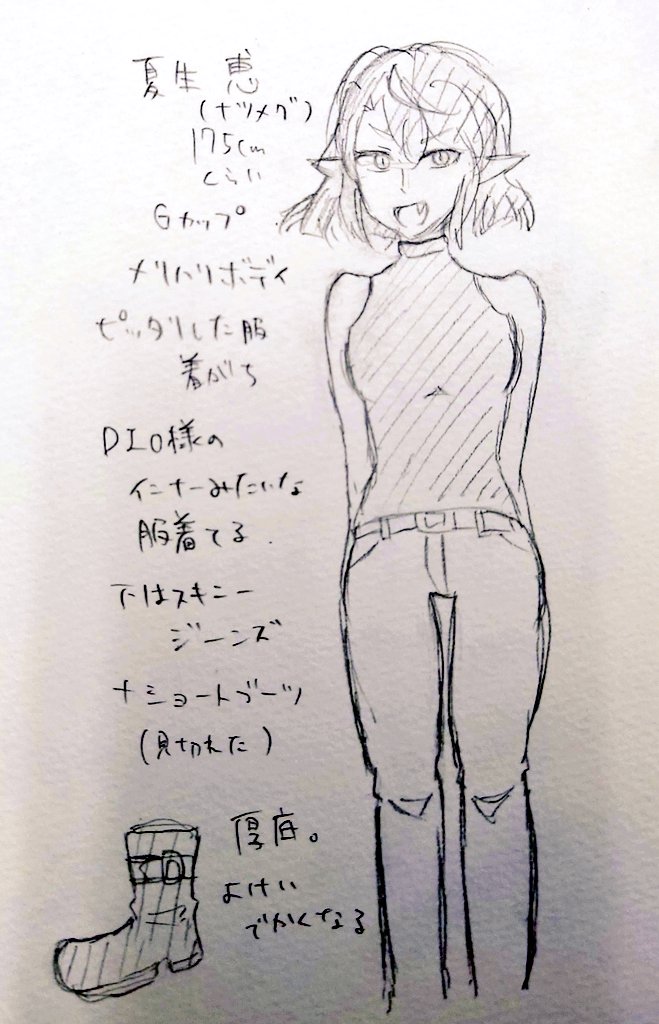 夏生 恵
(ナツメグ)
175cm
くらい
Gカップ
メリハリボディ
ピッタリした服
着がち
DIO様の
インナーみたいな
服着てる.
下はスキニー
ジーンズ
+ショートブーツ
(見切れた)
厚底。
よけい
でかくなる